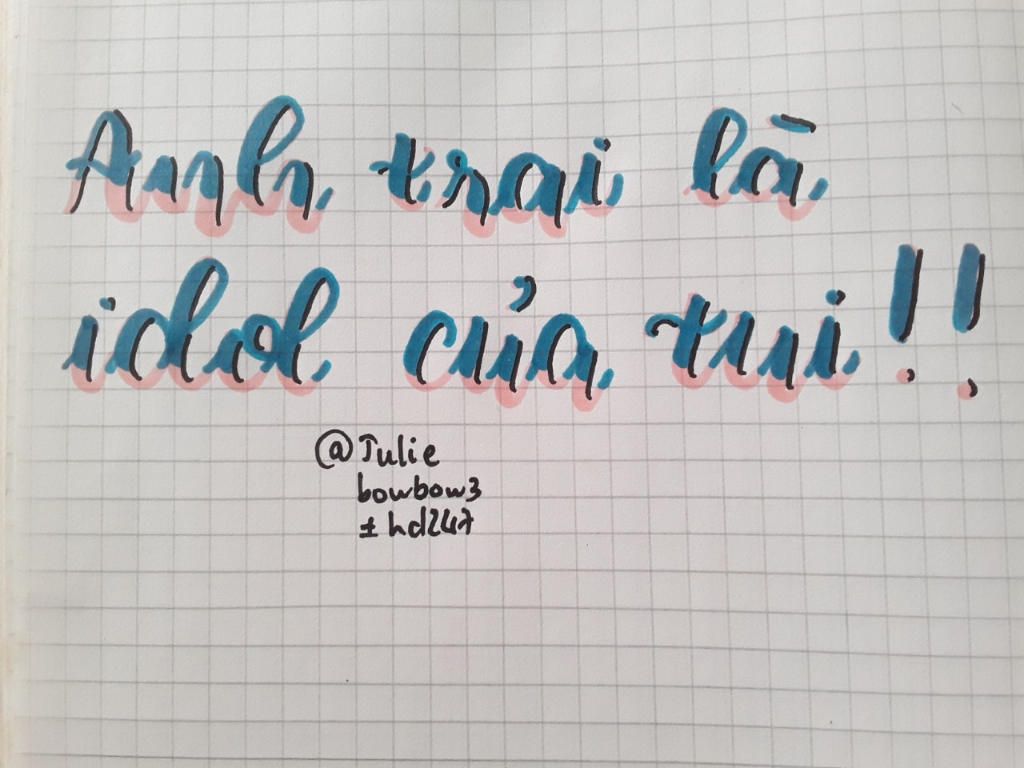 Anh trai là
idol của tui!!
@Julie
bowbow3
±hd247